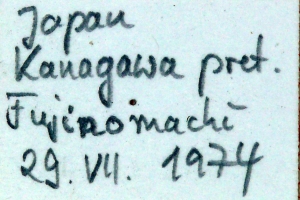 Japan
Kanagawa pret.
Fujinomachi
29. VII. 1974